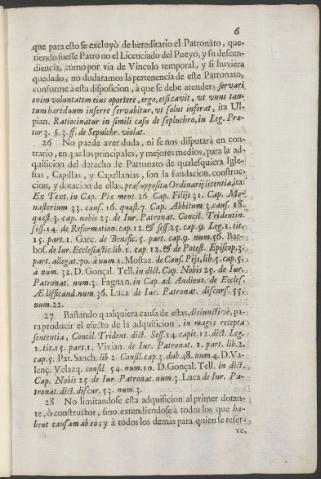 6
que para esto se excluyò de hereditario el Patronato, que-
riendo fuesse Patro no el Licenciado del Pueyo, y su descen-
dencia, como por via de Vinculo temporal, y si huviera
quedado, no dudaramos la pertenencia de este Patronato,
conforme à esta disposicion, à que se debe atender; servari
enim voluntatem eius oportere, ergo, etsi cavit, ut unus tan-
tum hæredum inferre servabitur, ut solus inferat, ita Ul-
pian. Ratiocinatur in simili casu de sepluchro, in Leg. Præ-
tor 3. §. 3. ff. de Sepulchr. violat.
26 No puede aver duda, ni se nos disputarà en con-
trario, en que los principales, y mejores medios, para la ad-
quisicion del derecho de Patronato de qualesquiera Igle-
sias, Capillas, y Capellanias, son la fundacion, construc-
cion, y dotacion de ellas, præsupposita Ordinarij licentia, ita:
Ex Text. in Cap. Pie ment. 26. Cap. Filijs 31. Cap. Mo-
nasterium 33. caus. 16. quæst. 7. Cap. Abbitum 3. caus. 18.
quæst. 3. cap. nobis 25. de Iur. Patronat. Concil. Tridentin.
Sess. 14. de Reformation. cap. 12. & sess. 25. cap. 9. Leg. 1. tit.
15. part. 1. Garc. de Benefic. 5. part. cap. 9. num. 56. Bar-
bos. de Iur. Ecclesiastic. lib. 3. cap. 12. & de Potest. Episcop. 3.
part. allegat. 70. à num 1. Mostaz. de Caus. Pijs, lib. 5. cap. 5.
à num. 32. D. Gonçal. Tell. in dict. Cap. Nobis 25. de Iur.
Patronat. num. 3. Fagnan. in Cap. ad Audient. de Eccles.
Ædificand. num. 36. Luca de Iur. Patronat. discurs. 55.
num. 22.
27 Bastando qualquiera causa de estas, disiunctivè, pa-
ra producir el efecto de la adquisicion, in magis recepta
sententia, Concil. Trident. dict. Sess. 14. capit. 12. dict. Leg.
1. tit. 15. part. 1. Vivian. de Iur. Patronat. 1. part. lib. 2.
cap. 5. Pat. Sanch. lib 2. Consil. cap. 3. dub. 48. num. 4. D. Va-
lenç. Velazq. consil 54. num. 10. D. Gonçal. Tell. in dict.
Cap. Nobis 25 de Iur. Patronat. num 3. Luca de Iur. Pa-
tronat. dict. discur. 53. num. 3.
28 No limitandose esta adquisicion al primer dotan-
te, ò constructor, sino extendiendose à todos los que ha-
bent causam ab eo; y à todos los demàs para quien se reser-
ve,